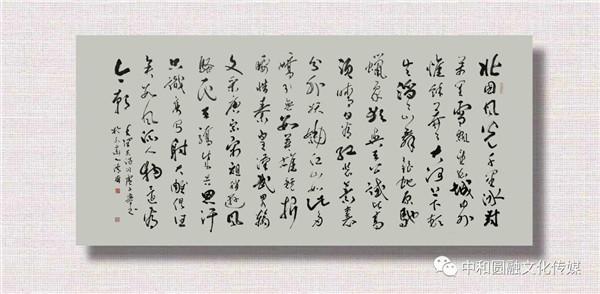 北国风光千里冰封
万里雪飘望长城内外
惟余莽莽大河上下顿
失滔滔山舞银蛇原驰
蜡象欲与天公试比高
须晴日看红装素裹
分外妖娆江山如此多
娇引无数英雄竞折
腰惜秦皇汉武略输
文采唐宗宋祖稍逊风
骚一代天骄成吉思汗
只识弯弓射大雕俱往
矣数风流人物还看
今朝
中和圆融文化传媒